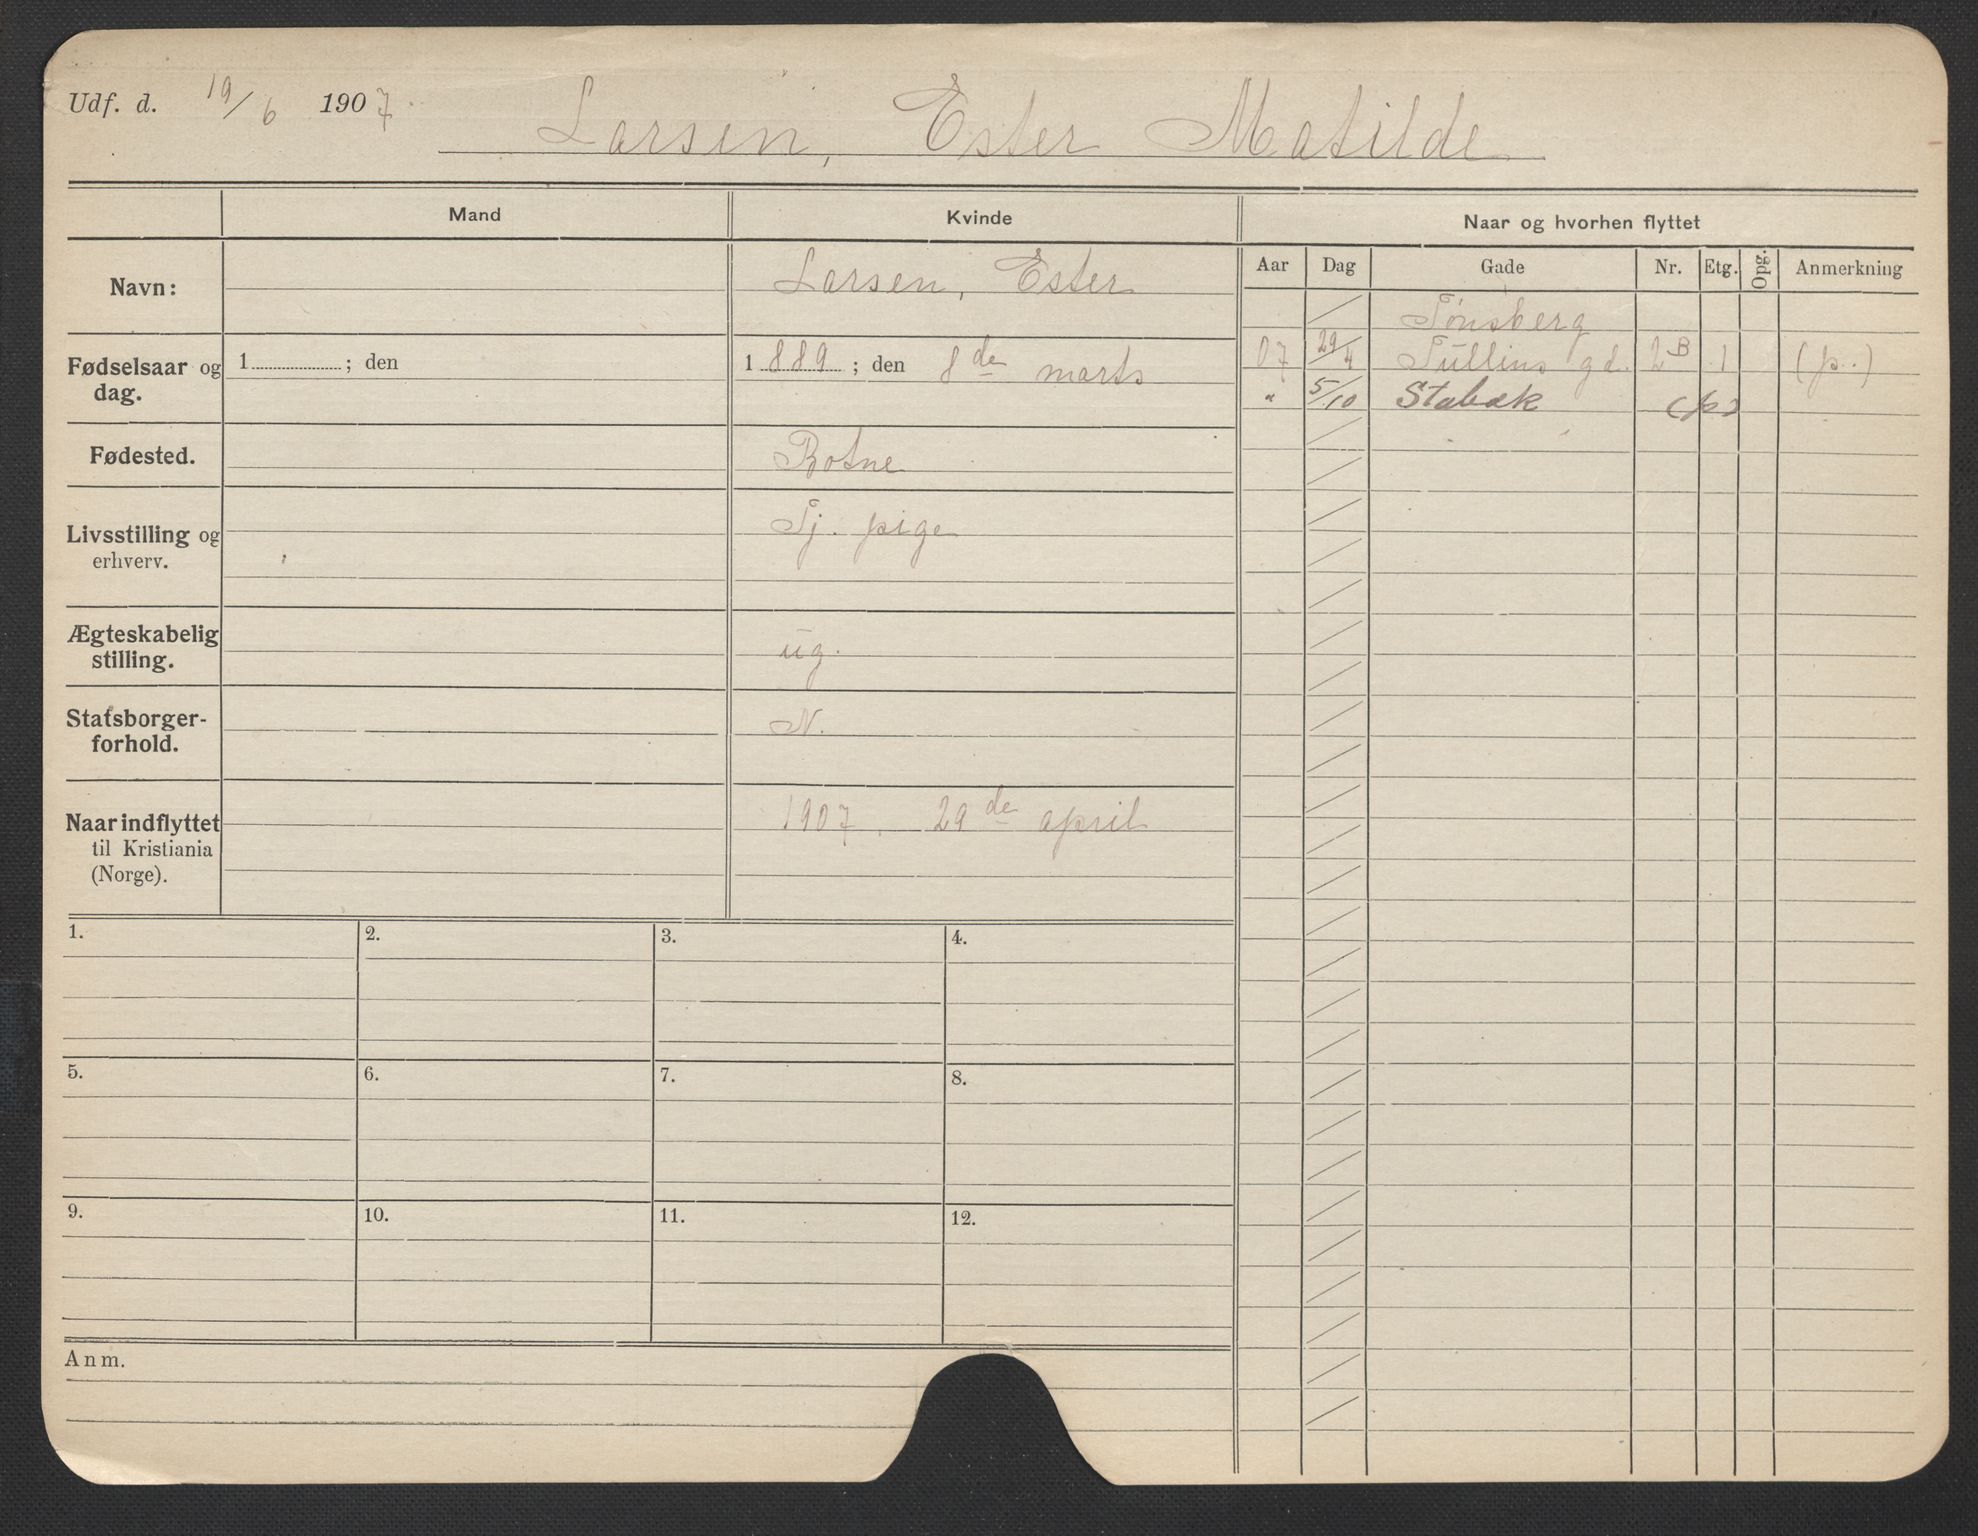 Udf. d. 19/6 1907
Larsen, Ester Matilde
Mand
Kvinde
Naar og hvorhen flyttet
Navn:
Larsen, Ester
Fødselsaar og
dag.
1 ; den
1889 ; den 8de marts
Fødested.
Botne
Livsstilling og
erhverv.
Tj. pige
Ægteskabelig
stilling.
ug.
Statsborger-
forhold.
N.
Naar indflyttet
til Kristiania
(Norge).
1907. 29de april
Aar Dag Gade Nr. Etg. Opg. Anmerkning
Tönsberg
07 29/4 Tullins gd. 2B 1 (p.)
" 5/10 Stabæk (p)
1. 2. 3. 4.
5. 6. 7. 8.
9. 10. 11. 12.
Anm.